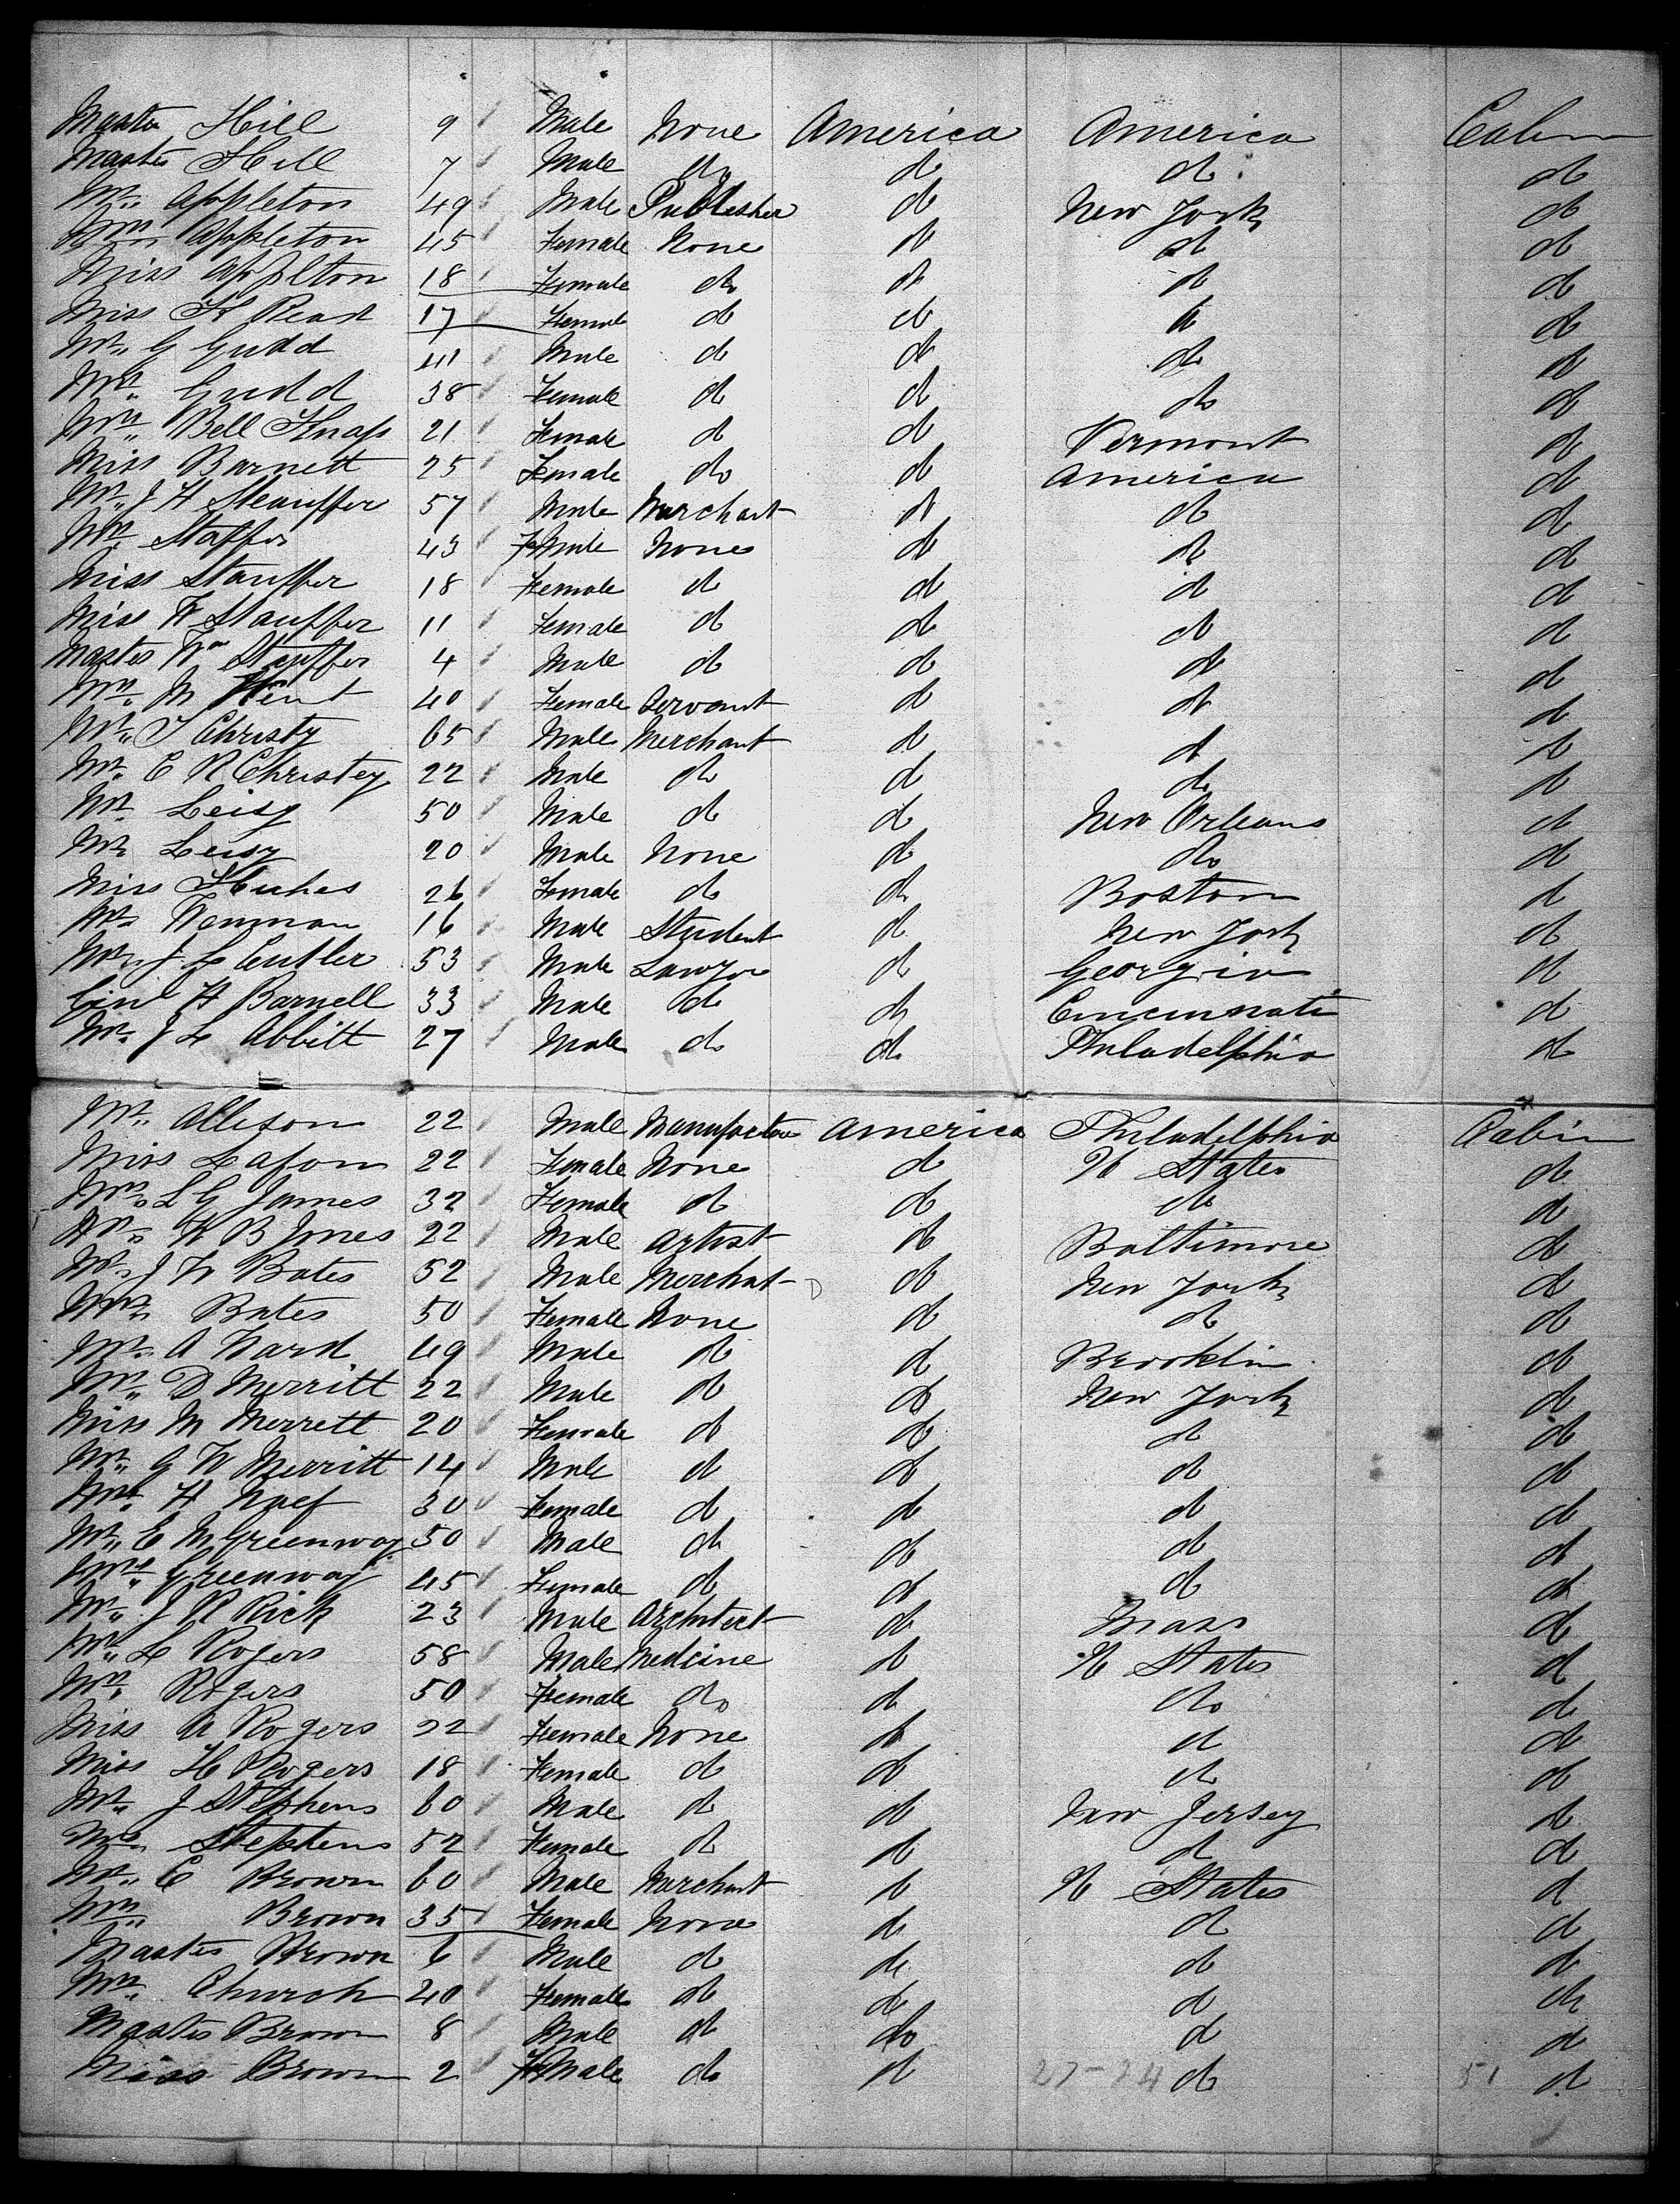 Master Hill 9 Male None America America Cabin
Master Hill 7 Male do do do do
Mr. Appleton 49 Male Publisher do New York do
Mrs. Appleton 45 Female None do do do
Miss Applton 18 Female do do do do
Miss 17 Female do do do do
Mr. G Gudd 41 Male do do do do
Mrs. Gudd 38 Female do do do do
Mrs. Bell Knap 21 Female do do Vermont do
Miss Barnett 25 Female do do America do
Mr. J H Steauffer 57 Male Merchant do do do
Mrs. Staffer 43 FeMale None do do do
Miss Stauffer 18 Female do do do do
Miss W Stauffer 11 Female do do do do
Master Wm Stauffer 4 Male do do do do
Mrs. M Kent 40 Female Servant do do do
Mr. T Christy 65 Male Merchant do do do
Mr. E R Christey 22 Male do do do do
Mr. Leisy 50 Male do do New Orleans do
Mr. Leisy 20 Male None do do do
Miss Huhes 26 Female do do Boston do
Mr. Wenman 16 Male Student do New York do
Mr. J L Cutler 53 Male Lawyer do Georgia do
Genl H Barnell 33 Male do do Cincinnati do
Mr. J L Abbitt 27 Male do do Philadelphia do
Mr. Allison 22 Male Manufacture America Philadelphia Cabin
Miss Lafon 22 Female None do U States do
Mrs. L G James 32 Female do do do do
Mr. H B Jones 22 Male Artist do Baltimore do
Mr. J W Bates 52 Male Merchat do New York do
Mrs. Bates 50 Female None do do do
Mr. A Ward 49 Male do do Brooklin do
Mr. D Merritt 22 Male do do New York do
Miss M Merrett 20 Female do do do do
Mr. G W Merritt 14 Male do do do do
Mrs. H Naef 30 Female do do do do
Mr. E M Greenway 50 Male do do do do
Mrs. Greenway 45 Female do do do do
Mr. J R Rich 23 Male Architect do Mass do
Mr. L Rogers 58 Male Medicine do U States do
Mrs. Rogers 50 Female do do do do
Miss A Rogers 22 Female None do do do
Miss H Rogers 18 Female do do do do
Mr. J Stephens 60 Male do do New Jersey do
Mrs. Stephens 52 Female do do do do
Mr. E Brown 60 Male Merchant do U States do
Mrs. Brown 35 Female None do do do
Master Brown 6 Male do do do do
Mrs. Church 20 Female do do do do
Master Brown 8 Male do do do do
Miss Brown 2 FeMale do do 27-24 do 51 do